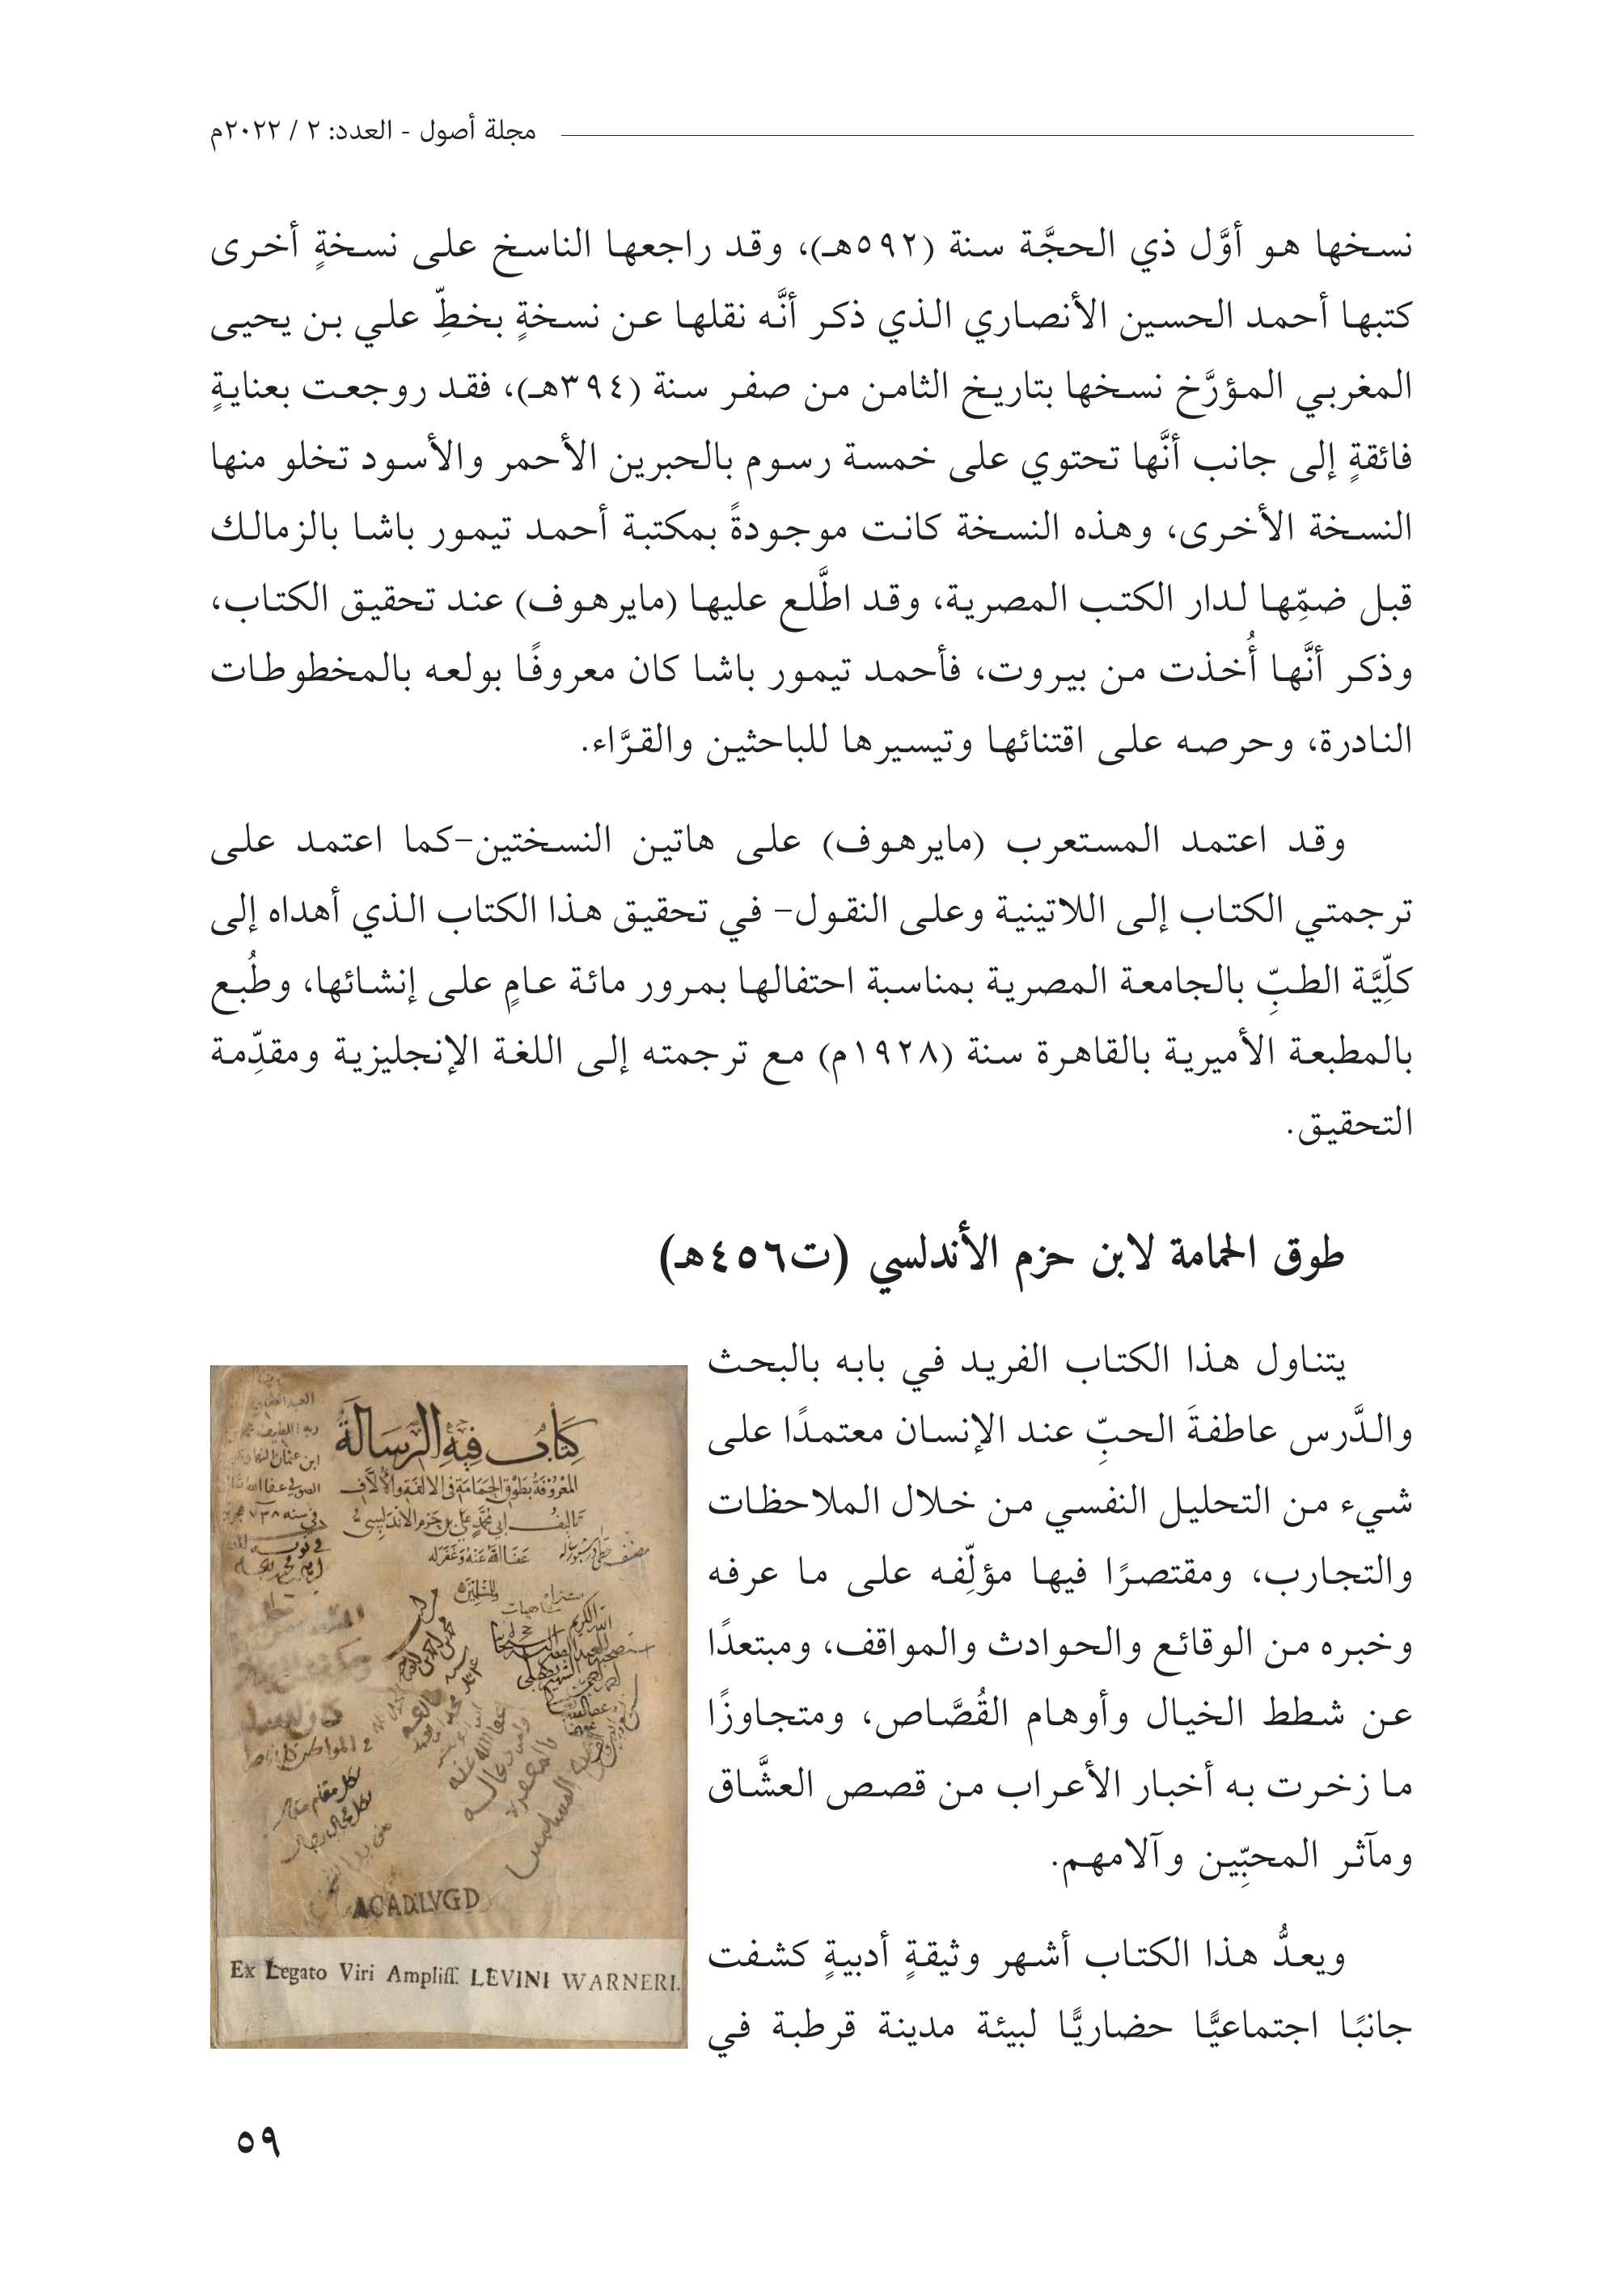 مجلة أصول - العدد: ٢ / ٢٠٢٢م
نسخها هو أوَّل ذي الحجَّة سنة (٥٩٢هـ)، وقد راجعها الناسخ على نسخةٍ أخرى
كتبها أحمد الحسين الأنصاري الذي ذكر أنَّه نقلها عن نسخةٍ بخطِّ علي بن يحيى
المغربي المؤرَّخ نسخها بتاريخ الثامن من صفر سنة (٣٩٤هـ)، فقد روجعت بعنايةٍ
فائقةٍ إلى جانب أنَّها تحتوي على خمسة رسوم بالحبرين الأحمر والأسود تخلو منها
النسخة الأخرى، وهذه النسخة كانت موجودةً بمكتبة أحمد تيمور باشا بالزمالك
قبل ضمِّها لدار الكتب المصرية، وقد اطَّلع عليها (مايرهوف) عند تحقيق الكتاب،
وذكر أنَّها أُخذت من بيروت، فأحمد تيمور باشا كان معروفًا بولعه بالمخطوطات
النادرة، وحرصه على اقتنائها وتيسيرها للباحثين والقرَّاء.
وقد اعتمد المستعرب (مايرهوف) على هاتين النسختين-كما اعتمد على
ترجمتي الكتاب إلى اللاتينية وعلى النقول- في تحقيق هذا الكتاب الذي أهداه إلى
كلِّيَّة الطبِّ بالجامعة المصرية بمناسبة احتفالها بمرور مائة عامٍ على إنشائها، وطُبع
بالمطبعة الأميرية بالقاهرة سنة (١٩٢٨م) مع ترجمته إلى اللغة الإنجليزية ومقدِّمة
التحقيق.
طوق الحمامة لابن حزم الأندلسي (ت٤٥٦هـ)
يتناول هذا الكتاب الفريد في بابه بالبحث
والدَّرس عاطفةَ الحبِّ عند الإنسان معتمدًا على
شيء من التحليل النفسي من خلال الملاحظات
والتجارب، ومقتصرًا فيها مؤلِّفه على ما عرفه
وخبره من الوقائع والحوادث والمواقف، ومبتعدًا
عن شطط الخيال وأوهام القُصَّاص، ومتجاوزًا
ما زخرت به أخبار الأعراب من قصص العشَّاق
ومآثر المحبِّين وآلامهم.
ويعدُّ هذا الكتاب أشهر وثيقةٍ أدبيةٍ كشفت
جانبًا اجتماعيًّا حضاريًّا لبيئة مدينة قرطبة في
كتاب فيه الرسالة
المعروفة بطوق الحمامة في الالفة والألاف
تاليف ابي محمد علي بن حزم الاندلسي
عفا الله عنه وغفر له
ACAD.LVGD
Ex Legato Viri Ampliss. LEVINI WARNERI.
٥٩